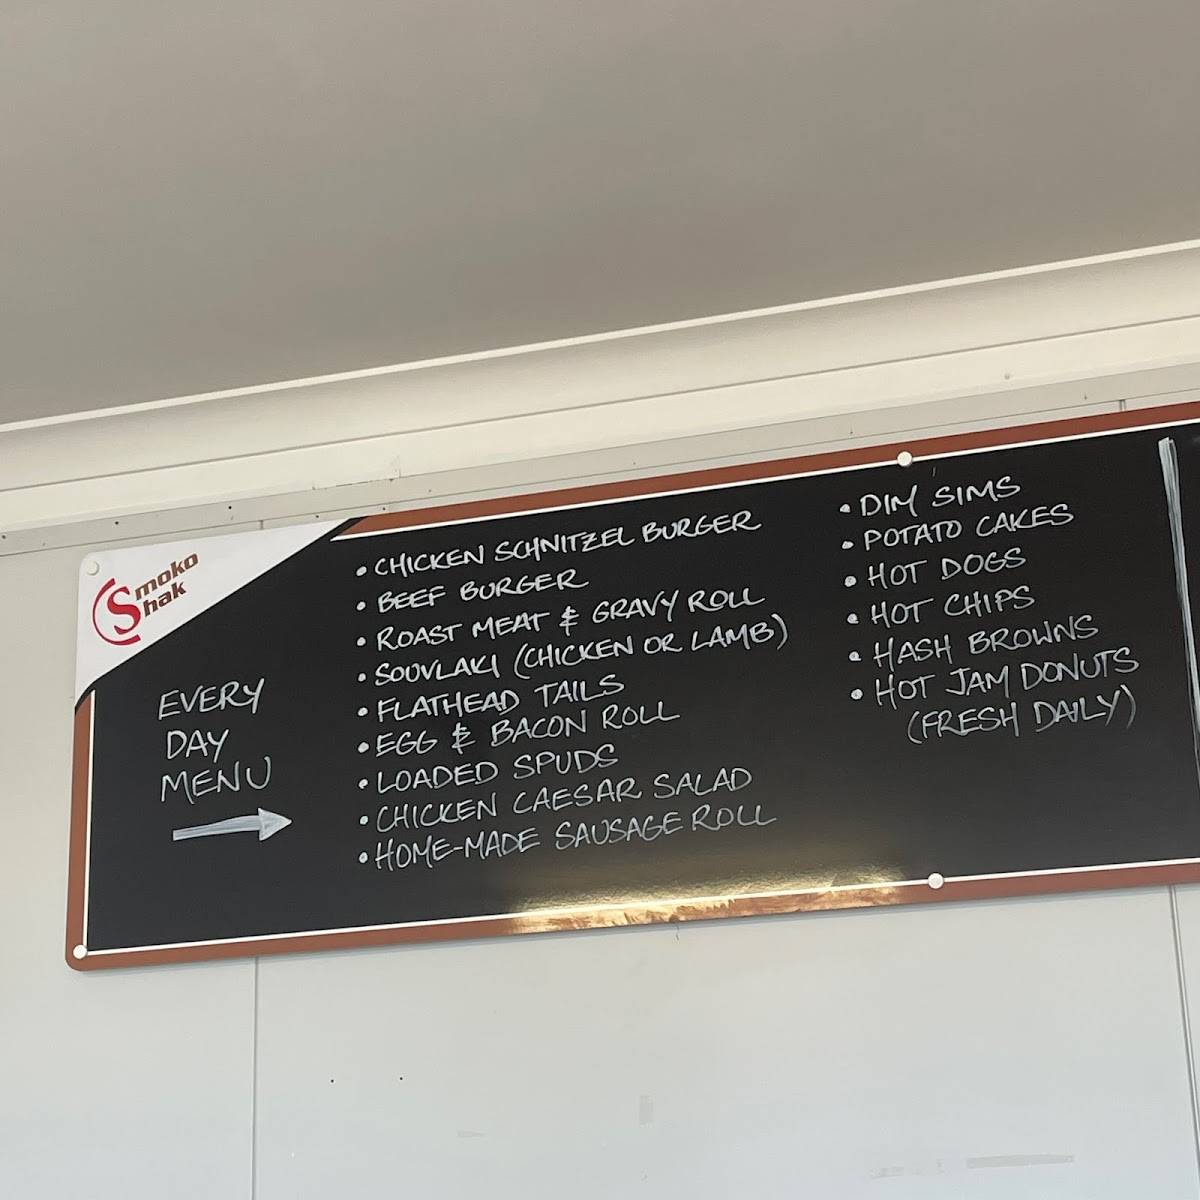 Smoko
Shak
EVERY
DAY
MENU
• CHICKEN SCHNITZEL BURGER
• BEEF BURGER
• ROAST MEAT & GRAVY ROLL
• SOUVLAKI (CHICKEN OR LAMB)
• FLATHEAD TAILS
• EGG & BACON ROLL
• LOADED SPUDS
• CHICKEN CAESAR SALAD
• HOME-MADE SAUSAGE ROLL
• DIM SIMS
• POTATO CAKES
• HOT DOGS
• HOT CHIPS
• HASH BROWNS
• HOT JAM DONUTS
(FRESH DAILY)